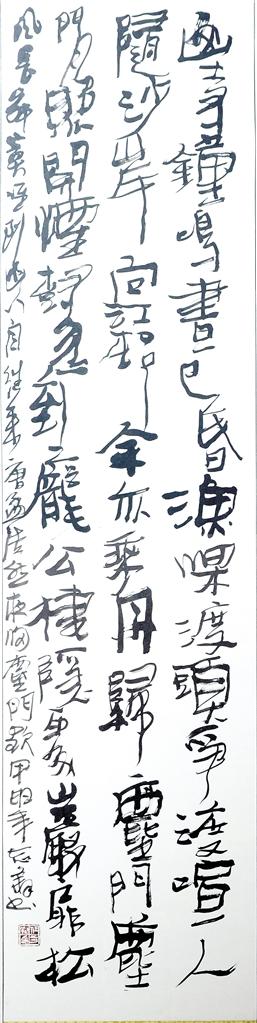 山寺鐘鳴晝已昏漁梁渡頭爭渡喧人
隨沙岸向江邨余亦乘舟歸鹿門鹿
門月照開煙樹忽到龐公棲隱處巖扉松
長幽人自往來唐孟浩然夜歸鹿門歌甲申年書